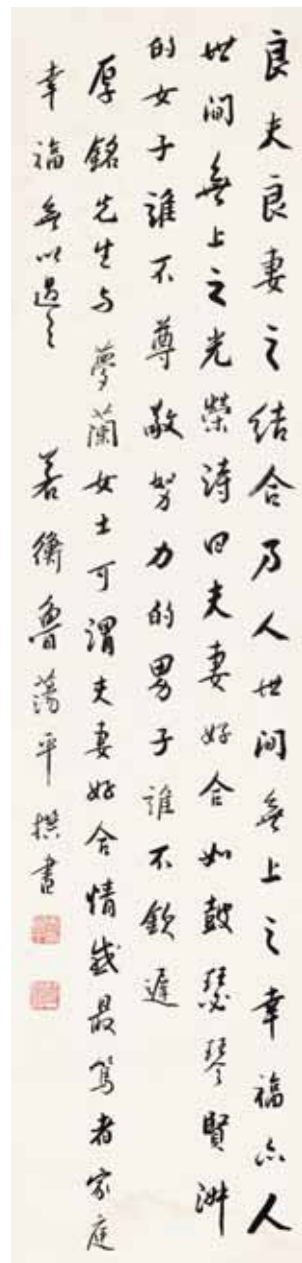 良夫良妻之结合乃人世间無上之幸福亦人
世间無上之光榮诗曰夫妻好合如鼓瑟琴賢淋
的女子誰不尊敬努力的男子誰不欽遲
厚銘先生与夢蘭女士可謂夫妻好合情感最篤者家庭
幸福無以過之
若衡魯蕩平撰書